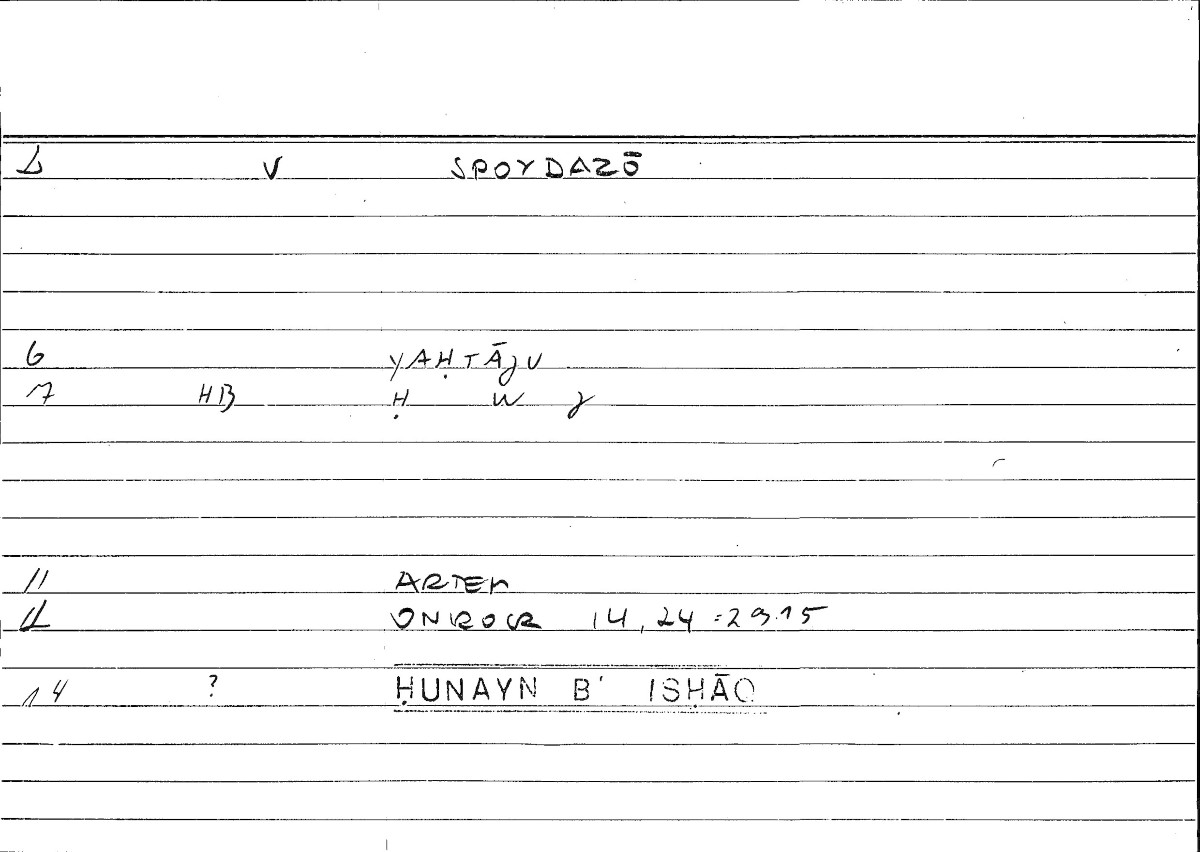 1 V SPOYDAZŌ
6 YAḤTĀJU
7 HB Ḥ W J
11 ARTEM
12 ONIROCR 14,24=29.15
14 ? ḤUNAYN B' ISḤĀQ